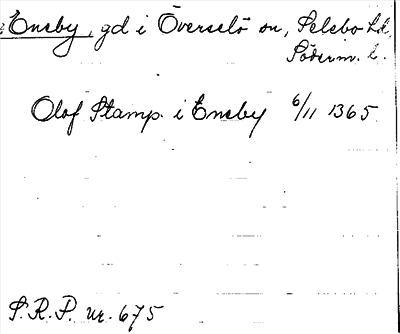 Eneby, gd i Överselö sn, Selebo hd,
Söderm. l.
Olof Stamp. i Eneby 6/11 1365
S.R.P. nr. 675